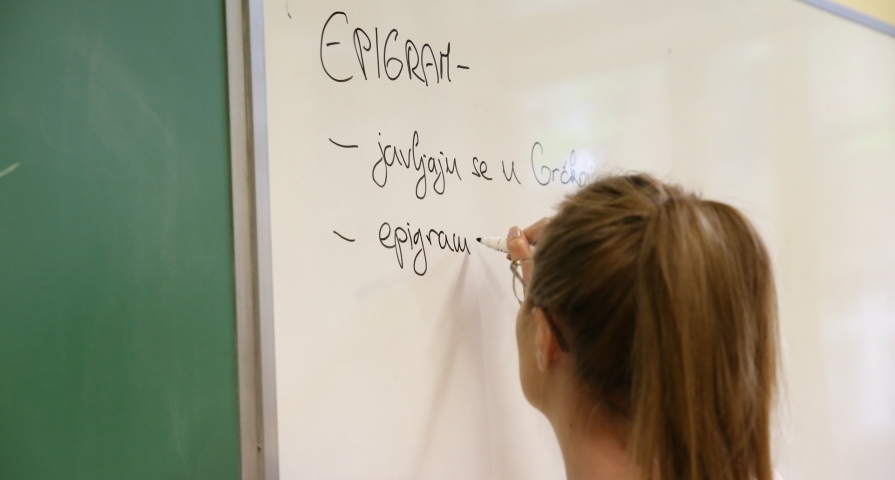 EPIGRAM -
- javljaju se u Grčkoj
- epigram